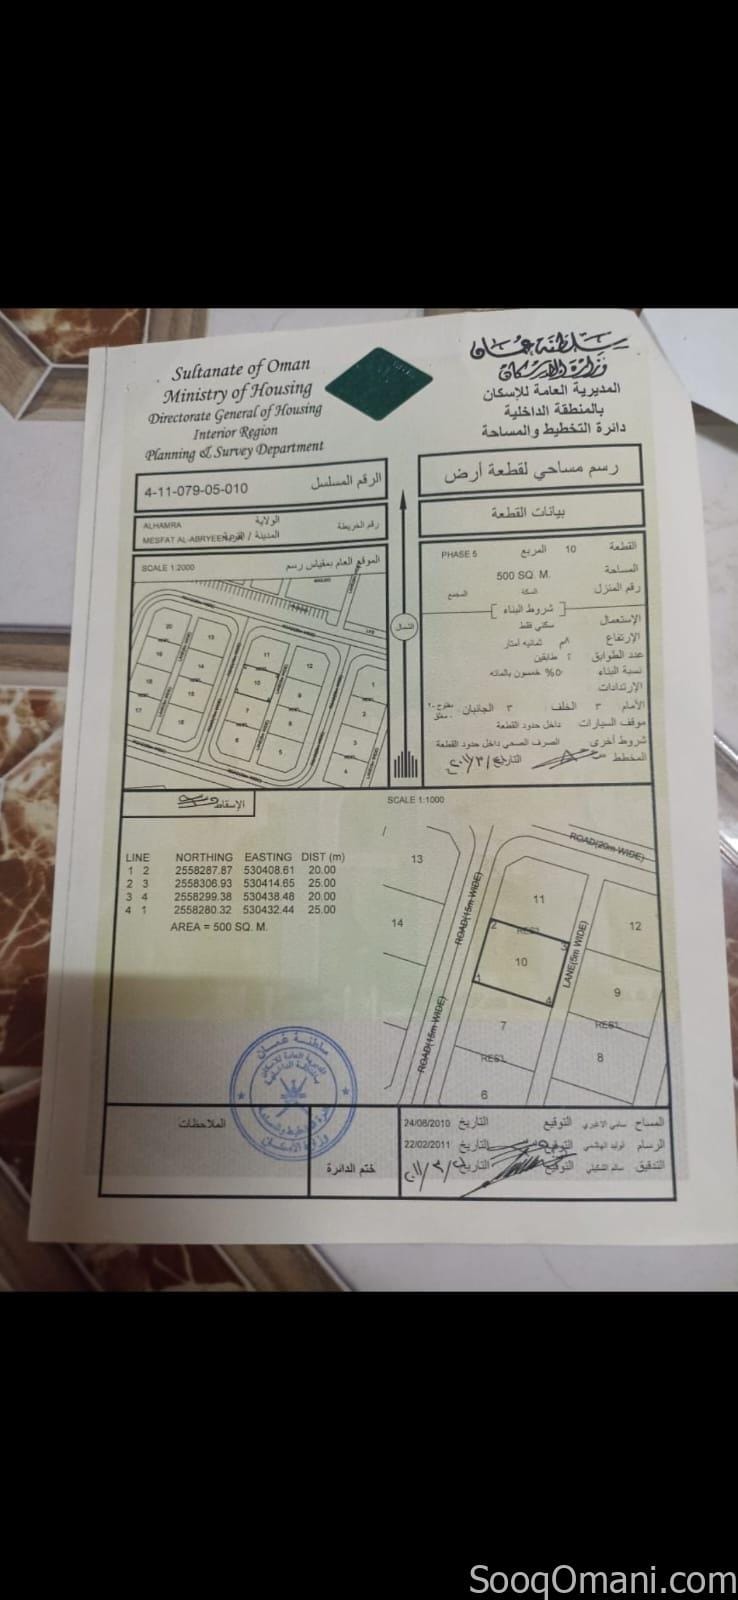 Sultanate of Oman
Ministry of Housing
Directorate General of Housing
Interior Region
Planning & Survey Department
سلطنة عمان
وزارة الإسكان
المديرية العامة للإسكان
بالمنطقة الداخلية
دائرة التخطيط والمساحة
4-11-079-05-010 الرقم المسلسل
رسم مساحي لقطعة أرض
ALHAMRA الولاية
رقم الخريطة
MESFAT AL-ABRYEEN المدينة / القرية
بيانات القطعة
SCALE 1:2000 الموقع العام بمقياس رسم
الشمال
القطعة 10 المربع PHASE 5
المساحة 500 SQ. M.
رقم المنزل السكة المجمع
[ شروط البناء ]
الإستعمال سكني فقط
الإرتفاع ٨م ثمانيه أمتار
عدد الطوابق ٢ طابقين
نسبة البناء ٥٠% خمسون بالمائه
الإرتدادات
الأمام ٣ الخلف ٣ الجانبان
موقف السيارات داخل حدود القطعة
شروط أخرى الصرف الصحي داخل حدود القطعة
المخطط التاريخ
20
19
18
17
13
14
15
16
11
10
7
6
12
9
8
5
1
2
3
4
الإسقاط
SCALE 1:1000
LINE NORTHING EASTING DIST (m)
1 2 2558287.87 530408.61 20.00
2 3 2558306.93 530414.65 25.00
3 4 2558299.38 530438.48 20.00
4 1 2558280.32 530432.44 25.00
AREA = 500 SQ. M.
ROAD(20m WIDE)
13
14
ROAD(15m WIDE)
ROAD(15m WIDE)
11
RES1
2
3
10
1
4
LANE(5m WIDE)
12
9
7
RES1
RES1
8
6
سلطنة عمان
المديرية العامة للإسكان
وزارة الإسكان
الملاحظات
ختم الدائرة
المساح التوقيع التاريخ 24/08/2010
الرسام التوقيع التاريخ 22/02/2011
التدقيق التوقيع التاريخ
SooqOmani.com